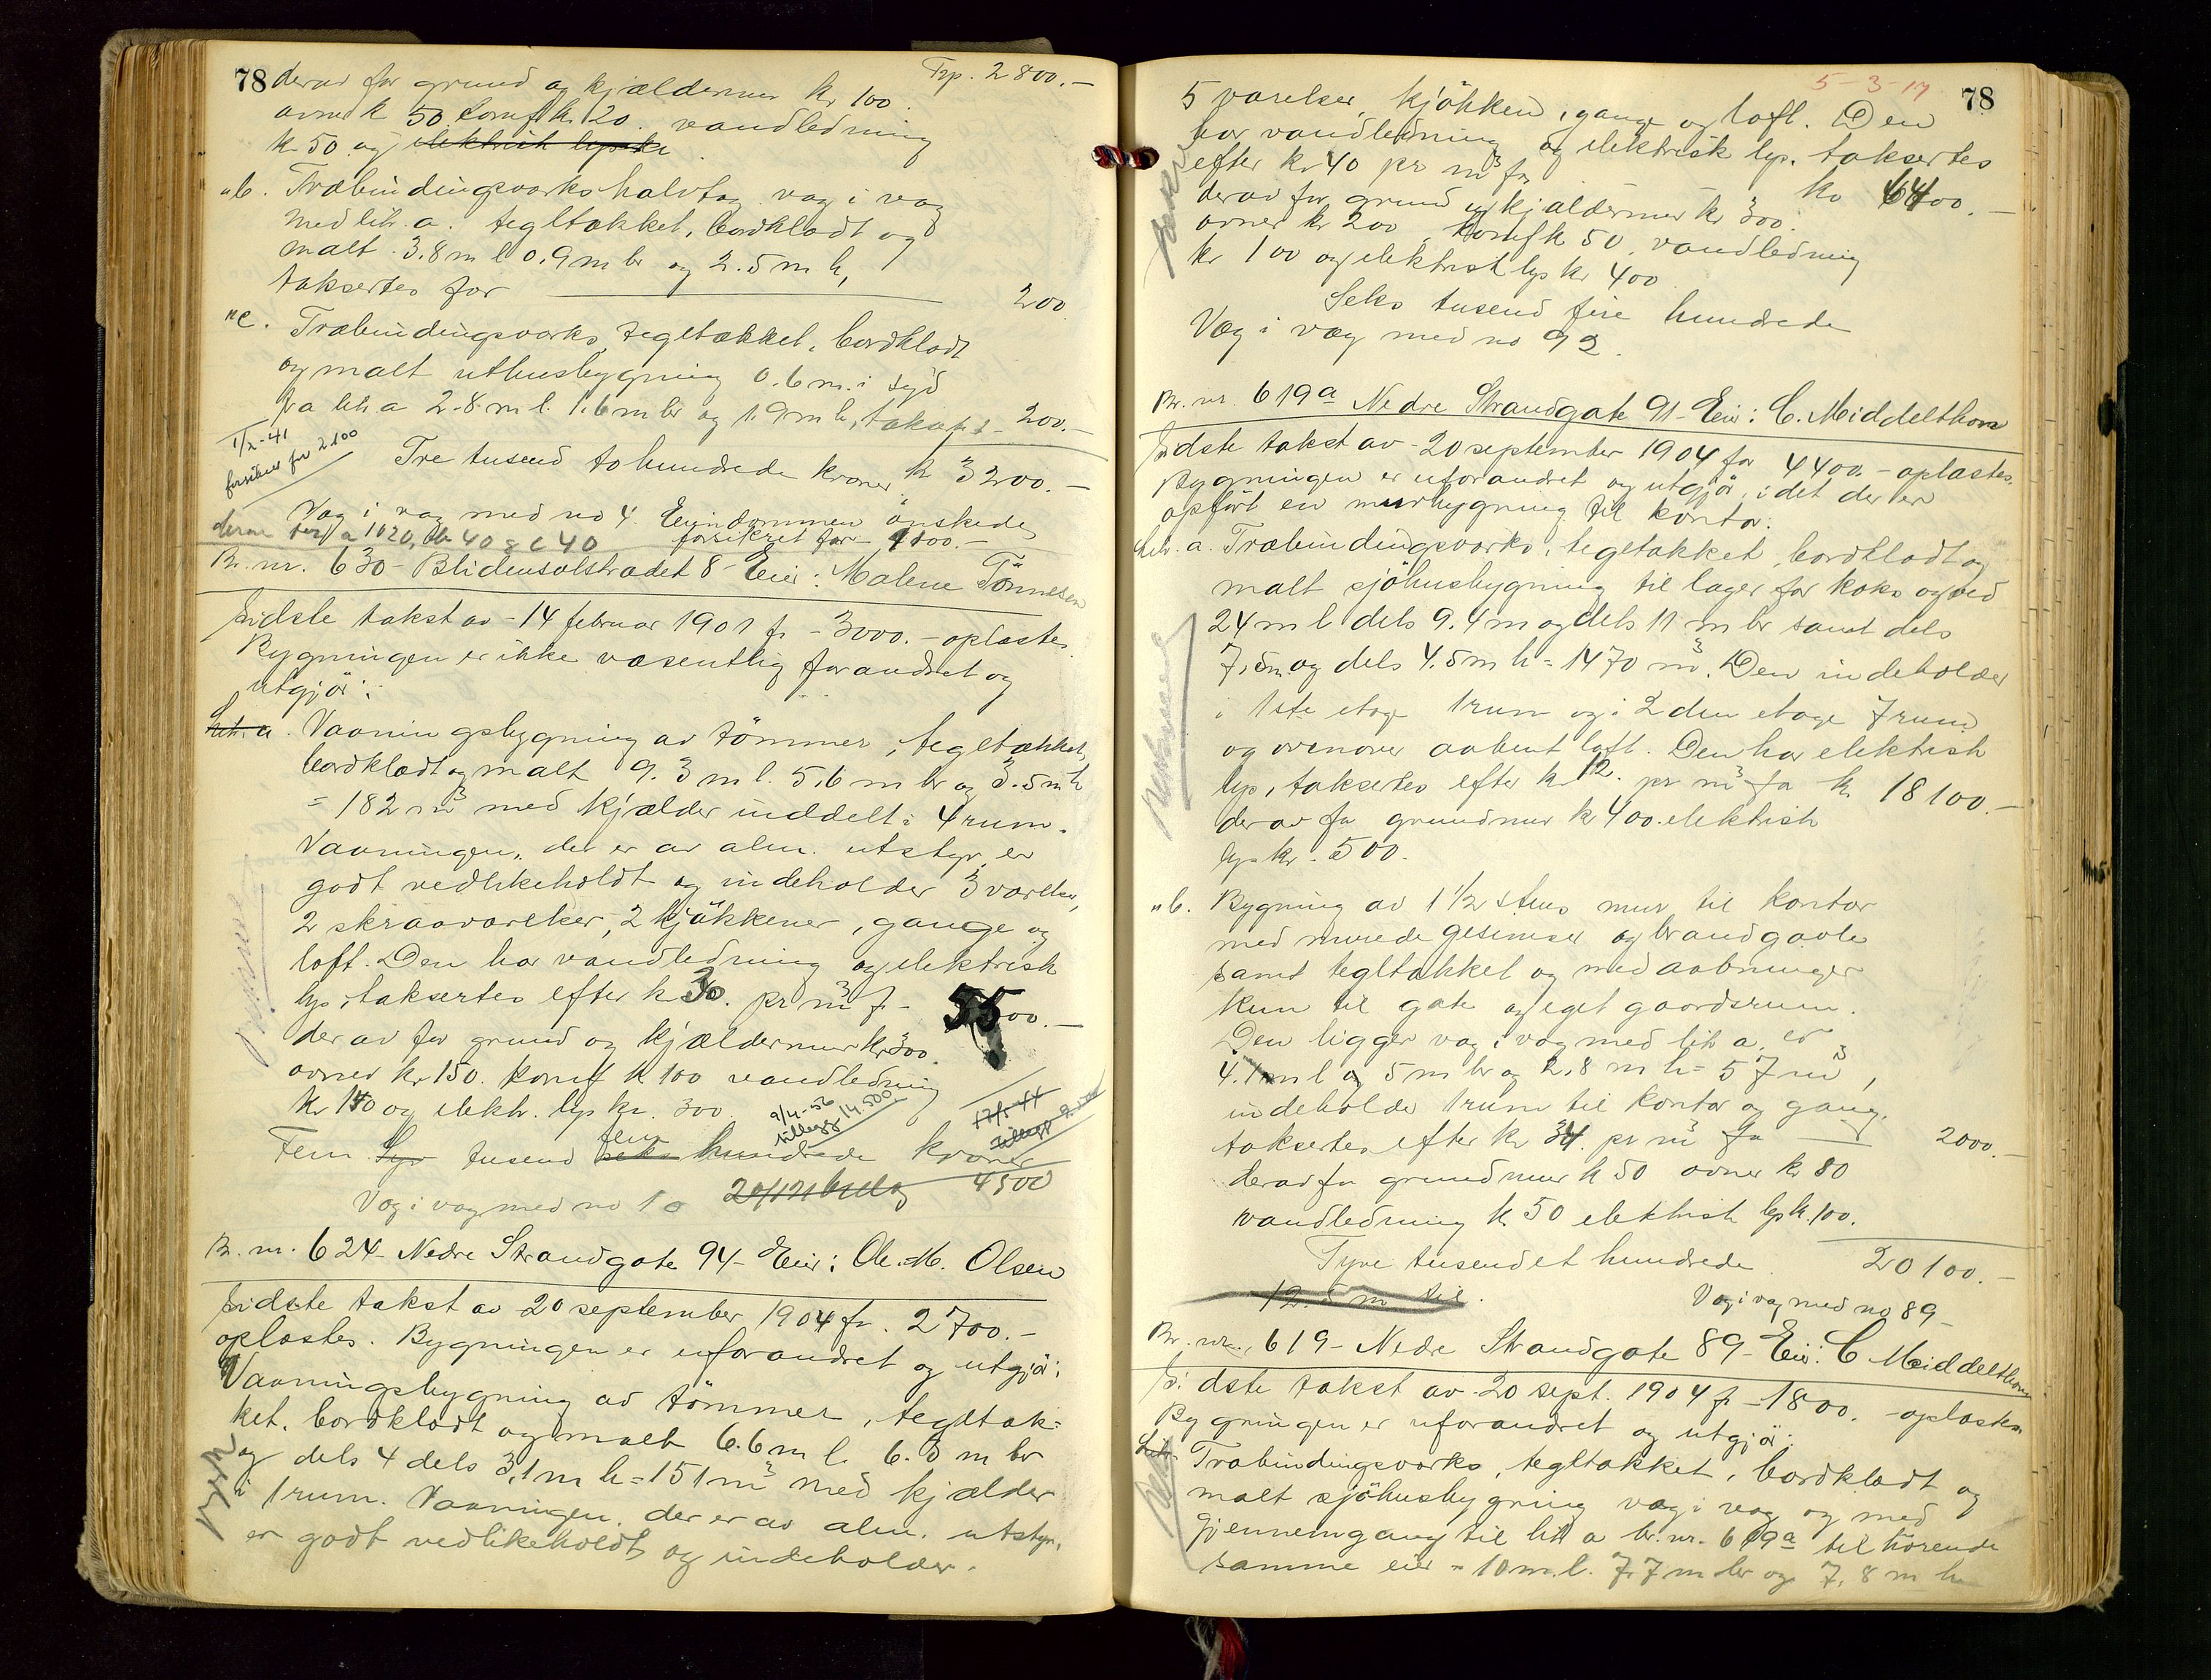 78 derav for grund og kjældermur kr 100. Trp. 2800.—
ovne k 50. komf k. 20. vandledning
kr 50. og elektrisk lys kr
"b. Træbindingsverks halvtag væg i væg
med lit. a. tegltækket, bordklædt og
malt. 3.8 m l 0.9 m br og 2.5 m h,
taksertes for 200.
"c. Træbindingsverks, tegltækket, bordklædt
og malt uthusbygning 0.6 m. i syd
fra lit. a 2.8 m l. 1.6 m br og 1.9 m h, takst 200.—
1/2-41
forsikret for 2100
Tre tusend to hundrede kroner k 3200.—
Væg i væg med no 4. Eiendommen önskede
forsikret for
derav a 1020, b 40 & c 40
Br. nr. 630 - Blidensolstrædet 8 - Eier: Malene Tönnesen
Sidste takst av - 14 februar 1901 fr - 3000. - oplæstes.
Bygningen er ikke væsentlig forandret og
utgjör:
Lit. a. Vaaningsbygning av tömmer, tegltækket,
bordklædt og malt 9.3 m l. 5.6 m br og 3.5 m h
= 182 m³ med kjælder inddelt i 4 rum.
Vaaningen, der er av alm. utstyr, er
godt vedlikeholdt og indeholder 3 værelser,
2 skraaværelser, 2 kjökkener, gange og
loft. Den har vandledning og elektrisk
lys, taksertes efter k 30. pr m³ fr - 5500.—
derav for grund og kjældermur kr 300.
ovner kr 150. komf k 100 vandledning
kr 150 og elektr. lys kr. 300.
9/4-56
tillegg 14.500
17/5-44
tillegg
Fem Syv tusend fem seks hundrede kroner
Væg i væg med no 10 4500
Br. nr. 624 - Nedre Strandgate 94 - Eier: Ole M. Olsen
Sidste takst av 20 september 1904 fr. 2700.—
oplæstes. Bygningen er uforandret og utgjör:
Vaaningsbygning av tömmer, tegltæk-
ket, bordklædt og malt 6.6 m l. 6.3 m br
og dels 4 dels 3.1 m h = 151 m³ med kjælder
i 1 rum. Vaaningen, der er av alm. utstyr,
er godt vedlikeholdt og indeholder.
5-3-17 78
5 værelser, kjökken, gange og loft. Den
har vandledning og elektrisk lys. taksertes
efter kr 40 pr m³ fr kr 6400.—
derav for grund og kjældermur kr 300.
ovner kr 200 komf k 50, vandledning
kr 100 og elektrisk lys kr 400
Seks tusend fire hundrede
Væg i væg med no 92.
Br. nr. 619a Nedre Strandgate 91 - Eier: C. Middelthon
Sidste takst av - 20 september 1904 for 4400. - oplæstes.
Bygningen er uforandret og utgjör, idet der er
opfört en murbygning til kontor.
Lit. a. Træbindingsverks, tegltækket, bordklædt og
malt sjöhusbygning til lager for koks og ved
24 m l dels 9.4 m og dels 11 m br samt dels
7.5 m og dels 4.5 m h = 1470 m³. Den indeholder
i 1ste etage 1 rum og i 2den etage 7 rum
og ovenover aabent loft. Den har elektrisk
lys, taksertes efter kr 12. pr m³ fr k. 18100.—
derav for grundmur kr 400. elektrisk
lys kr. 500.
"b. Bygning av 1 1/2 stens mur til kontor
med murede gesimser og brandgavle
samt tegltækket og med aabninger
kun til gate og eget gaardsrum.
Den ligger væg i væg med lit a, er
4.1 m l og 5 m br og 2.8 m h = 57 m³,
indeholder 1 rum til kontor og gang.
taksertes efter kr 34. pr m³ for 2000.—
derav for grundmur k 50 ovner kr 80
vandledning k 50 elektrisk lys k. 100.
Tyve tusend et hundrede 20100.—
12.5 m til.
Væg i væg med no 89 -
Br. nr. 619 - Nedre Strandgate 89 - Eier: C Middelthon
Sidste takst av 20 sept. 1904 fr - 1800. - oplæstes
Bygningen er uforandret og utgjör:
Lit. Træbindingsverks, tegltækket, bordklædt og
malt sjöhusbygning væg i væg og med
gjennemgang til lit a br. nr. 619a tilhörende
samme eier = 10 m. l. 7.7 m br og 7.8 m h